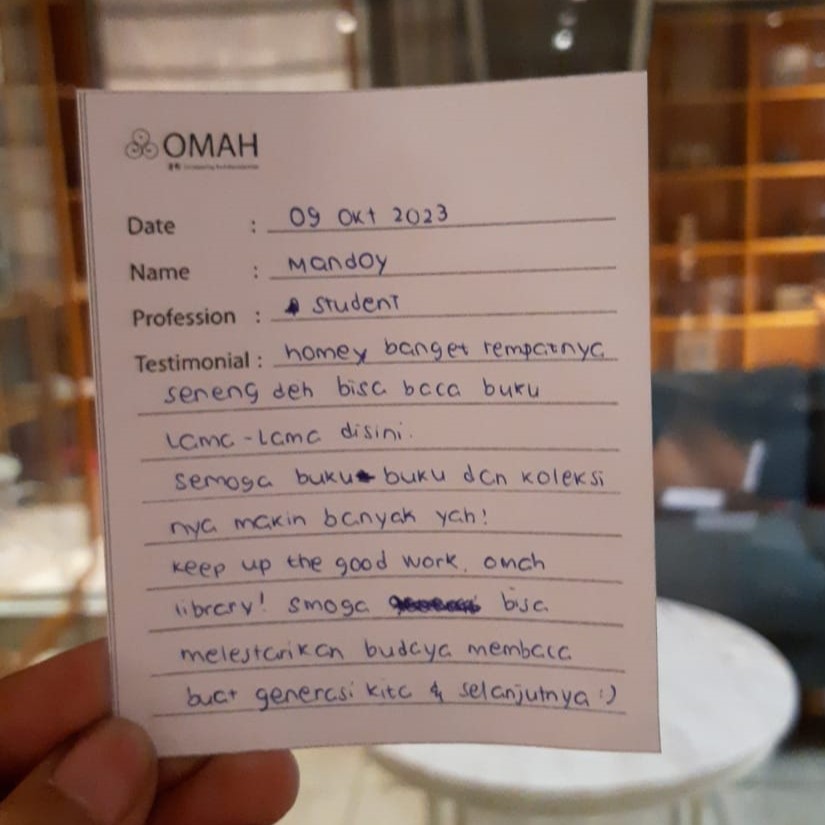 OMAH
Date : 09 Okt 2023
Name : Mandoy
Profession : Student
Testimonial : homey banget tempatnya
seneng deh bisa baca buku
lama-lama disini.
semoga buku buku dan koleksi
nya makin banyak yah!
keep up the good work. omah
library! smoga bisa
melestarikan budaya membaca
buat generasi kita & selanjutnya :)